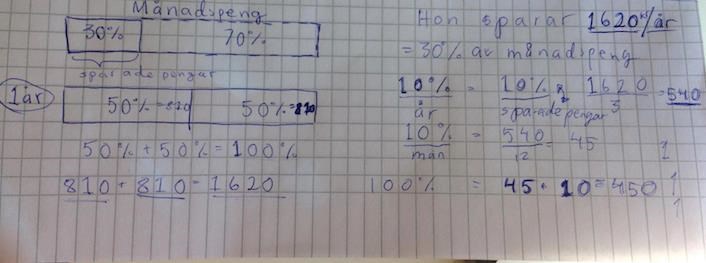 Månadspeng
30% 70%
sparade pengar
1 år
50%=810 50%=810
50% + 50% = 100%
810 + 810 = 1620
Hon sparar 1620 kr/år
= 30% av månadspeng
10% = 10% 1620 = 540
år sparade pengar 3
10% = 540 = 45
mån 12
100% = 45 · 10 = 450